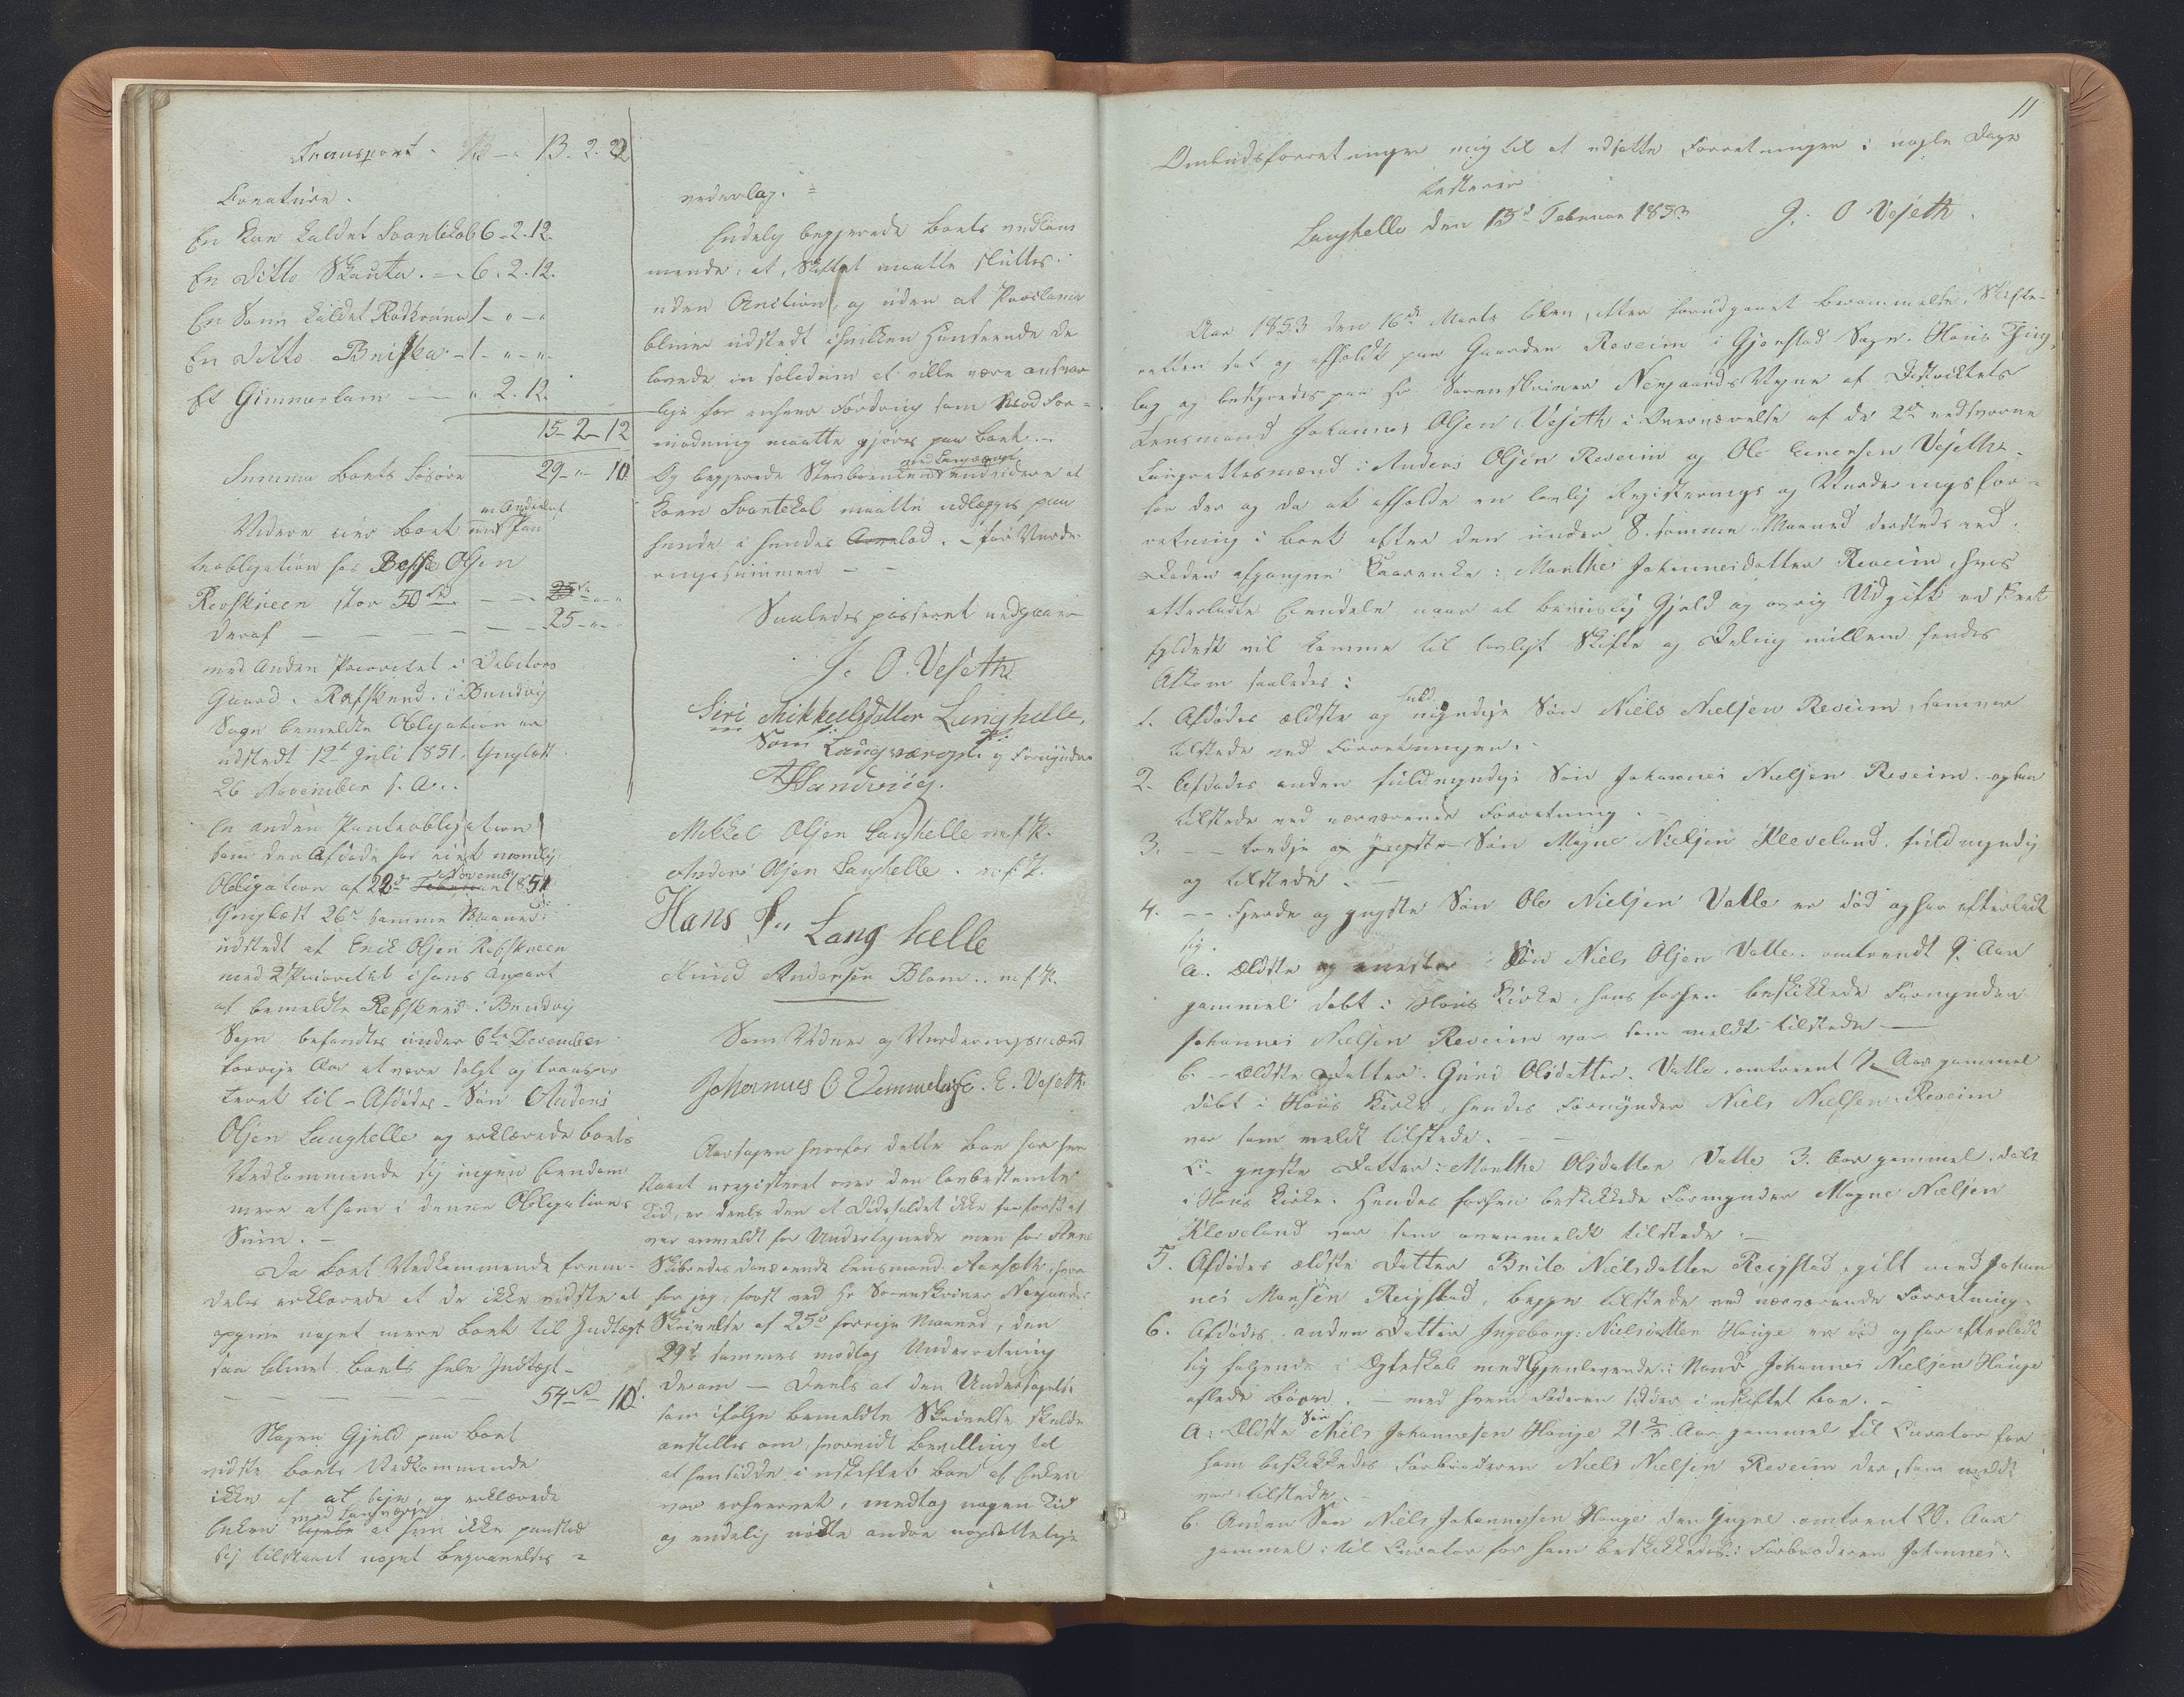 Transport - 13 - " 13. 2. 22
Creature.
En Koe kaldet Svartekol 6 - 2. 12.
En Ditto Skauta. - 6. 2. 12.
En Sau kaldet Rødkruna 1 - " - "
En Ditto Briska - 1 - " - "
Et Gimmerlam — " 2. 12.
15 - 2 - 12
Summa Boets Løsøre 29 - " - 10
Videre eier Boet en Andeel af Pan
teobligation hos Olsen
Refskreen stor 50 Spd. — 25 - " - "
deraf — — — — 25 - " - "
med anden Prioritet i Debitors
Gaard. Refskred i Bruvig
Sogn bemeldte Obligation er
udstedt 12te Juli 1851. Tinglæst
26 November s. A..
En anden Panteobligation
som den Afdøde har eiet nemlig
Obligation af 22de November 1851
Tinglæst 26de samme Maaned
udstedt af Erik Olsen Refskreen
med 2 Prioritet i hans anpart
af bemeldte Refskred i Bruvig
Sogn befandtes under 6te December
forrige Aar at være solgt og transpor
teret til Afdødes Søn Anders
Olsen Langhelle og erklærede boets
Vedkommende sig ingen Eendom
mere at have i denne Obligations
Sum. -
Da boets Vedkommende frem-
deles erklærede at de ikke vidste at
opgive noget mere boet til Indtægt
saa blever boets hele Indtægt -
— — — 54 Spd - 10 s.
Nogen Gjeld paa boet
vidste boets Vedkommende
ikke af at sige, og erklærede
Enken med Laugværge at hun ikke paastod
sig tilstaaet noget begravelses =
vederlag. =
Endelig begjerede boets vedkom
mende, at Skiftet maatte sluttes
uden Auction, og uden at Proclama
bliver udstedt i hvilken Henseende de
lovede in solidum at ville være ansvar
lige for enhver Fordring som mod For =
modning maatte gjøres paa boet. -
Og begjerede Stervboenken med Laugværge endvidere at
Koen Svartekol maatte udlægges paa
hende i hendes lod. - for Vurde-
ringssummen - -
Saaledes passeret vedgaaes
J. O. Veseth
Siri Mikkelsdatter Langhelle,
Som Laugværge og Formynder
Handviig.
Mikkel Olsen Langhelle m. f. P.
Anders Olsen Langhelle. m. f. P.
Hans Langhelle
Knud Andersen Blom.. m. f. P.
Som Vidner og Vurderingsmænd
Johannes O E. Veseth
Aarsagen hvorfor dette boe har hen
staaet uregistreret over den lovbestemte
Tid, er deels den at Dødsfaldet ikke
var anmeldt for Undertegnede men for Arne
Skibredes daværende Lensmand Aarseth, hvor
for jeg, først ved Hr Sorenskriver Neegaards
Skrivelse af 25de forrige Maaned, den
29de sammes modtog Underretning
derom — Deels at den Undersøgelse
som ifølge bemeldte Skrivelse skulde
anstilles om hvorvidt Bevilling til
at hensidde i uskiftet boe af Enken
var erhvervet, medtog nogen Tid
og endelig nødte andre uopsættelige
11
Ombudsforretninger mig til at udsætte Forretningen i nogle Dage
testerer
Langhelle den 13de Februar 1853 J. O Veseth.
Aar 1853 den 16de Marts blev, efter forudgaaet berammelse, Skifte-
retten sat og afholdt paa Gaarden Reveim i Gjerstad Sogn Hous Ting-
lag og betjentes paa Hr Sorenskriver Neegaards Vegne af Distriktets
Lensmand Johannes Olsen Veseth i Overværelse af de 2de edsvorne
Laugrettesmænd: Anders Olsen Reveim og Ole Einersen Veseth.
for der og da at afholde en lovlig Registrerings og Vurderingsfor-
retning i boet efter den under 8. samme Maaned dersteds ved
Døden afgangne Kaarenke: Marthe Johannesdatter Reveim, hvis
efterladte Eendele naar al beviislig Gjeld og øvrig Udgift er skeet
fyldest vil komme til lovligt Skifte og Deling mellem hendes
Afkom saaledes:
1. Afdødes ældste og fuldmyndige Søn Niels Nielsen Reveim, som var
tilstede ved Forretningen. -
2. Afdødes anden fuldmyndige Søn Johannes Nielsen Reveim. og han
tilstede ved nærværende Forretning.
3. - - tredje og yngste Søn Magne Nielsen Kleveland. fuldmyndig
og tilstede. -
4. - - Fjerde og yngste Søn Ole Nielsen Valle er død og har efterladt
sig.
a. Ældste og eneste Søn Niels Olsen Valle. omtrendt 9. Aar
gammel døbt i Hous Kirke, hans forhen beskikkede Formynder
Johannes Nielsen Reveim var som meldt tilstede —
b. - Ældste Datter: Guri Olsdatter. Valle, omtrent 7 Aar gammel
døbt i Hous Kirke, hendes Formynder Niels Nielsen Reveim
var som meldt tilstede. -
c. yngste Datter: Marthe Olsdatter Valle 3. Aar gammel, døbt
i Hous Kirke. Hendes forhen beskikkede Formynder Magne Nielsen
Kleveland var som ovenmeldt tilstede. -
5. Afdødes ældste Datter Brite Nielsdatter Reigstad, gift med Johan
nes Monsen Reigstad, begge tilstede ved nærværende Forretning.
6. Afdødes anden Datter Ingeborg: Nielsdatter Houge er død og har efterladt
sig følgende i Ægteskab med Gjenlevende: Mand Johannes Nielsen Houge
aflede Børn. - med hvem Faderen sidder i uskiftet boe. -
a: Ældste Søn Niels Johannesen Houge 21 3/4 Aar gammel til Curator for
ham beskikkedes Farbroderen Niels Nielsen Reveim der, som meldt
var tilstede. -
b. Anden Søn Niels Johannesen Houge den Yngre omtrent 20. Aar
gammel: til Curator for ham beskikkedes: Farbroderen Johannes: